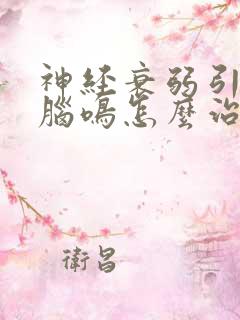 神经衰弱引
腦鳴怎麼治
衛昌